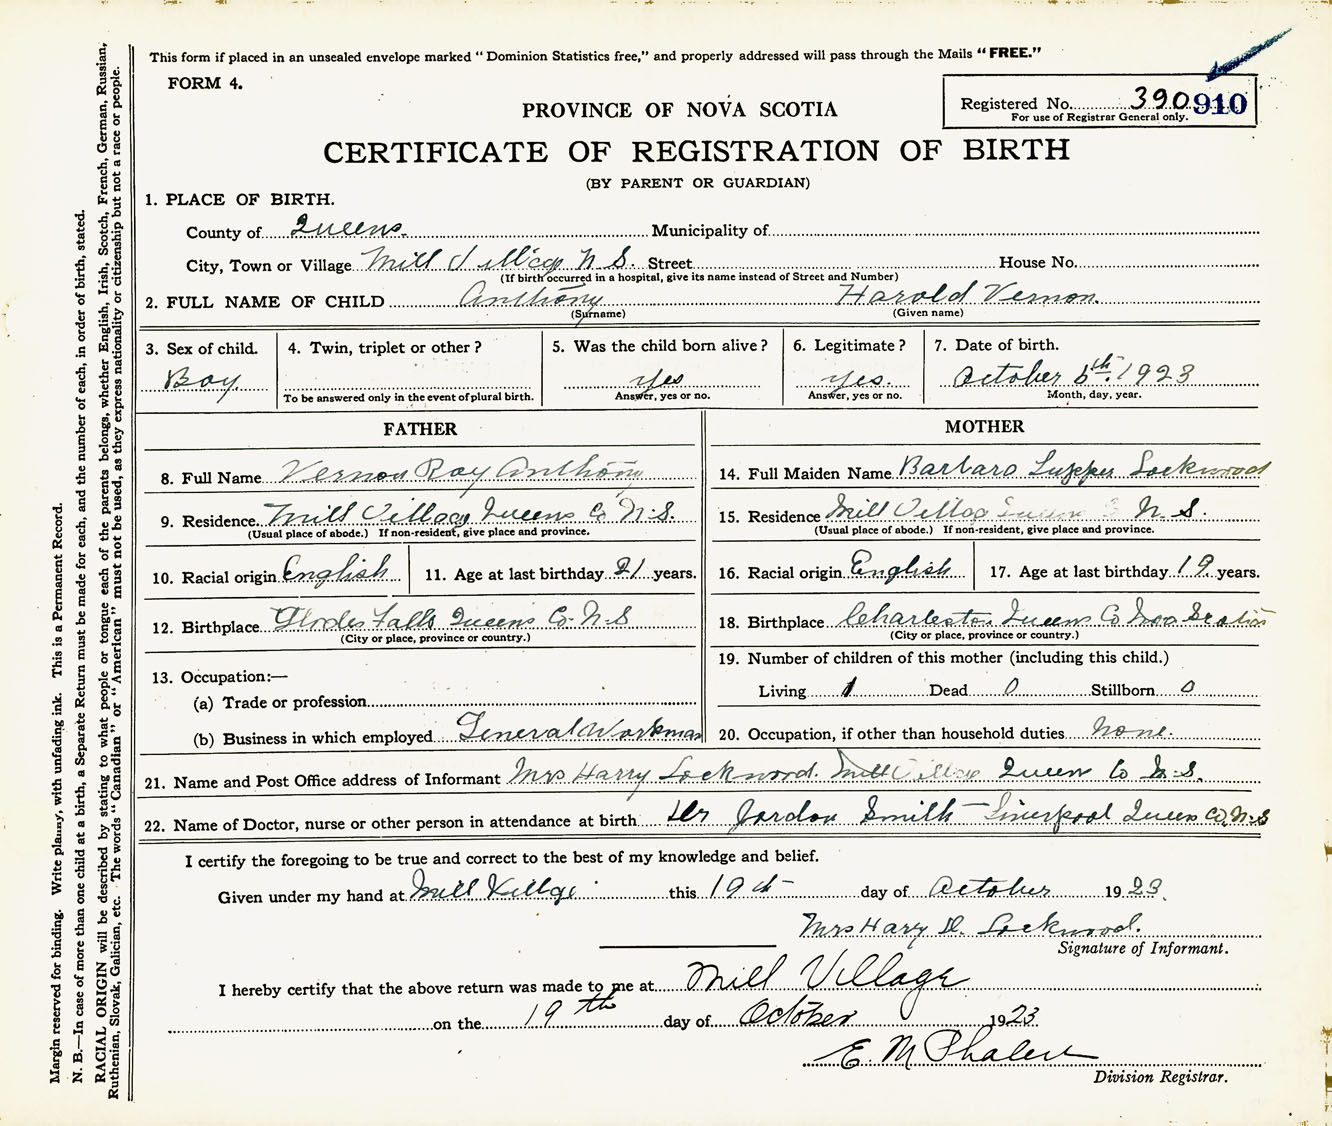 This form if placed in an unsealed envelope marked "Dominion Statistics free," and properly addressed will pass through the Mails "FREE."
FORM 4.
Registered No. 390 910
For use of Registrar General only.
PROVINCE OF NOVA SCOTIA
CERTIFICATE OF REGISTRATION OF BIRTH
(BY PARENT OR GUARDIAN)
1. PLACE OF BIRTH.
County of Queens. Municipality of
City, Town or Village Mill Village N.S. Street House No.
(If birth occurred in a hospital, give its name instead of Street and Number)
2. FULL NAME OF CHILD Anthony Harold Vernon.
(Surname) (Given name)
3. Sex of child. 4. Twin, triplet or other? 5. Was the child born alive? 6. Legitimate? 7. Date of birth.
Boy yes yes. October 6th. 1923
To be answered only in the event of plural birth. Answer, yes or no. Answer, yes or no. Month, day, year.
FATHER
8. Full Name Vernon Roy Anthony
9. Residence. Mill Village Queens Co N.S.
(Usual place of abode.) If non-resident, give place and province.
10. Racial origin English 11. Age at last birthday 21 years.
12. Birthplace Falls Queens Co. N.S
(City or place, province or country.)
13. Occupation:—
(a) Trade or profession
(b) Business in which employed General Workman
MOTHER
14. Full Maiden Name Barbara Tupper Lockwood
15. Residence Mill Village Queens N.S.
(Usual place of abode.) If non-resident, give place and province.
16. Racial origin English 17. Age at last birthday 19. years.
18. Birthplace Charleston Queens Co Nova Scotia
(City or place, province or country.)
19. Number of children of this mother (including this child.)
Living 1 Dead 0 Stillborn 0
20. Occupation, if other than household duties none.
21. Name and Post Office address of Informant Mrs Harry Lockwood. Mill Village Queens Co N.S.
22. Name of Doctor, nurse or other person in attendance at birth Dr Jordon Smith — Liverpool Queens Co, N.S
I certify the foregoing to be true and correct to the best of my knowledge and belief.
Given under my hand at Mill Village this 19th day of October 1923.
Mrs Harry D. Lockwood.
Signature of Informant.
I hereby certify that the above return was made to me at Mill Village
on the 19th day of October 1923
E. M Phalen
Division Registrar.
Margin reserved for binding. Write plainly, with unfading ink. This is a Permanent Record.
N. B.—In case of more than one child at a birth, a Separate Return must be made for each, and the number of each, in order of birth, stated.
RACIAL ORIGIN will be described by stating to what people or tongue each of the parents belongs, whether English, Irish, Scotch, French, German, Russian,
Ruthenian, Slovak, Galician, etc. The words "Canadian" or "American" must not be used, as they express nationality or citizenship but not a race or people.